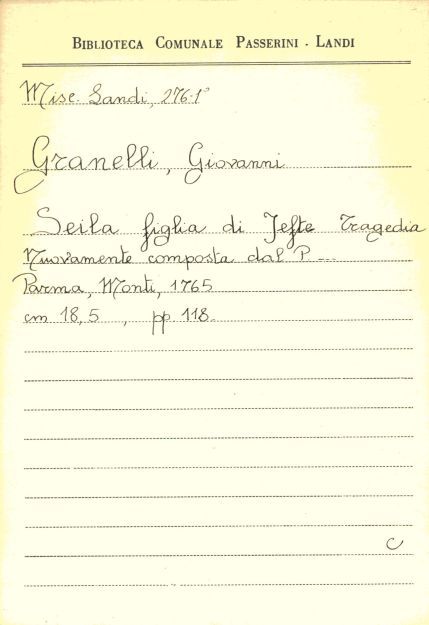 BIBLIOTECA COMUNALE PASSERINI - LANDI
Misc. Landi, 276-1°
Granelli, Giovanni
Seila figlia di Jefte Tragedia
Nuovamente composta dal P ...
Parma, Monti, 1765
cm 18,5 , pp 118.
C